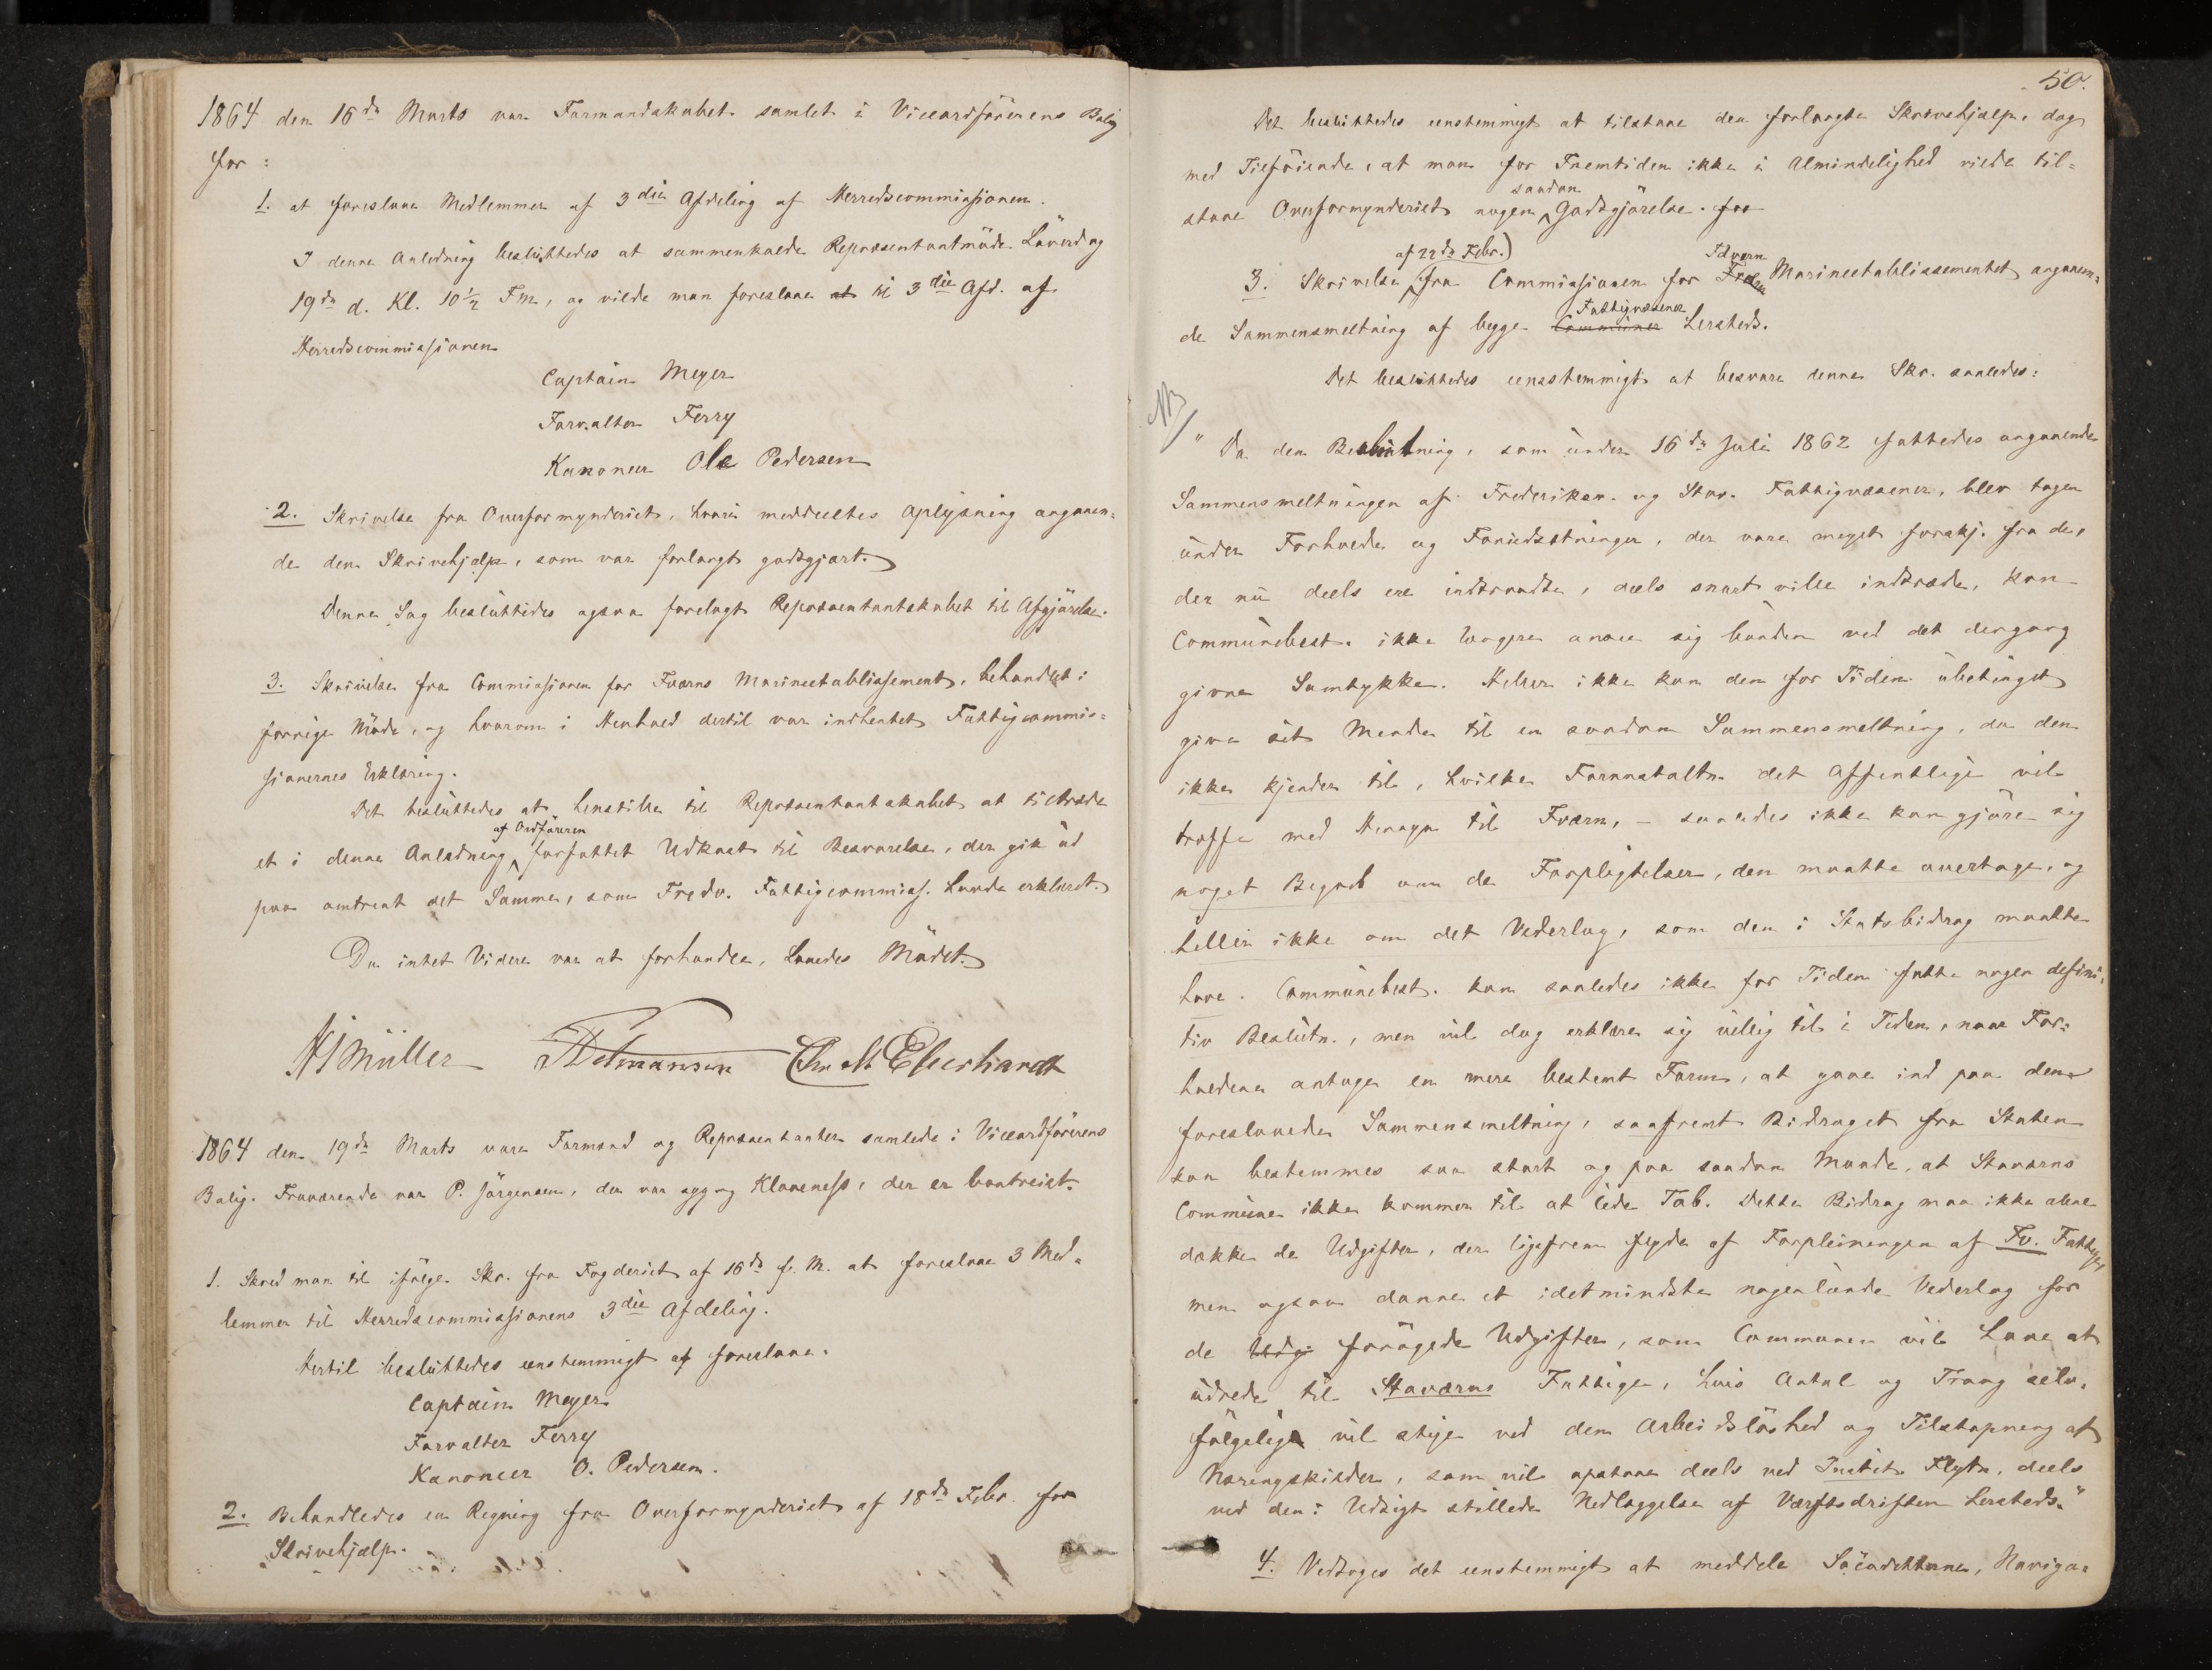 1864 den 16de Marts var Formandskabet samlet i Viceordförerens Bolig
for :
1. at foreslaae Medlemmer af 3die Afdeling af Herredscommissionen.
I denne Anledning besluttedes at sammenkalde Repræsentantmöde Löverdag
19de d. Kl. 10½ Fm., og vilde man foreslaae at til 3die Afd. af
Herredscommissionen
Captain Meyer
Forvalter Ferry
Kanoneer Ole Pedersen
2. Skrivelse fra Overformynderiet, hvori meddeeltes Oplysning angaaen=
de den Skrivehjælp, som var forlangt godtgjort.
Denne Sag besluttedes ogsaa forelagt Repræsentantskabet til Afgjörelse.
3. Skrivelse fra Commissionen for Fværns Marineetablissement, behandlet i
forrige Möde, og hvorom i Henhold dertil var indhentet Fattigcommis=
sionernes Erklæring.
Det besluttedes at henstille til Repræsentantskabet at tiltræde
et i denne Anledning af Ordföreren forfattet Udkast til Besvarelse, der gik ud
paa omtrent det Samme, som Fredv. Fattigcommiss. havde erklæret.
Da intet Videre var at forhandle, hævedes Mödet.
HJMüller Chr Eberhardt
1864 den 19de Marts vare Formænd og Repræsentanter samlede i Viceordförerens
Bolig. Fraværende var P. Jörgensen, der var syg og Klaveness, der er bortreist.
1. Skred man til ifölge Skr. fra Fogderiet af 16de f. M. at foreslaae 3 Med=
lemmer til Herredscommissionens 3die Afdeling.
Hertil besluttedes eenstemmigt at foreslaae.
Captain Meyer
Forvalter Ferry
Kanoneer O. Pedersen.
2. Behandledes en Regning fra Overformynderiet af 18de Febr. for
Skrivehjælp.
50.
Det besluttedes eenstemmigt at tilstaae den forlangte Skrivehjælp, dog
med Tilföiende, at man for Fremtiden ikke i Almindelighed vilde til=
staae Overformynderiet nogen saadan Godtgjörelse. for
3. Skrivelse af 22de Febr.) fra Commissionen for Fdværn Marineetablissementet angaaen=
de Sammensmeltning af begge Communer Fattigvæsener hersteds.
Det besluttedes eenstemmigt at besvare denne Skr. saaledes:
NB
" Da den Beslutning, som under 16de Juli 1862 fattedes angaaende
Sammensmeltningen af Frederiksv. og Stav. Fattigvæsener, blev tagen
under Forholde og Forudsætninger, der vare meget forskj. fra de,
der nu deels ere indtraadte, deels snart ville indtræde, kan
Communebest. ikke længere ansee sig bunden ved det dengang
givne Samtykke. Heller ikke kan den for Tiden ubetinget
give sit Minde til en saadan Sammensmeltning, da den
ikke kjender til, hvilke Foranstaltn. det Offentlige vil
træffe med Hensyn til Fværn, – saaledes ikke kan gjöre sig
noget Begreb om de Forpligtelser, den maatte overtage, og
heller ikke om det Vederlag, som den i Statsbidrag maatte
have. Communebest. kan saaledes ikke for Tiden fatte nogen defini=
tiv Beslutn., men vil dog erklære sig villig til i Tiden, naar For=
holdene antage en mere bestemt Form, at gaae ind paa den
foreslaaede Sammensmeltning, saafremt Bidraget fra Staten
kan bestemmes saa stort og paa saadan Maade, at Staværns
Commune ikke kommer til at lide Tab. Dette Bidrag maa ikke alene
dække de Udgifter, der ligefrem flyde af Forpleiningen af Fv. Fattige,
men ogsaa danne et idetmindste nogenlunde Vederlag for
de Udg: forögede Udgifter, som Communen vil have at
udrede til Staværns Fattige, hvis Antal og Trang selv=
fölgelig vil stige ved den Arbeidslöshed og Tilstopning af
Næringskilder, som vil opstaae deels ved Institut. Flytn., deels
ved den i Udsigt stillede Nedlæggelse af Værftsdriften hersteds."
4. Vedtoges det eenstemmigt at meddele Söcadetterne, Naviga=